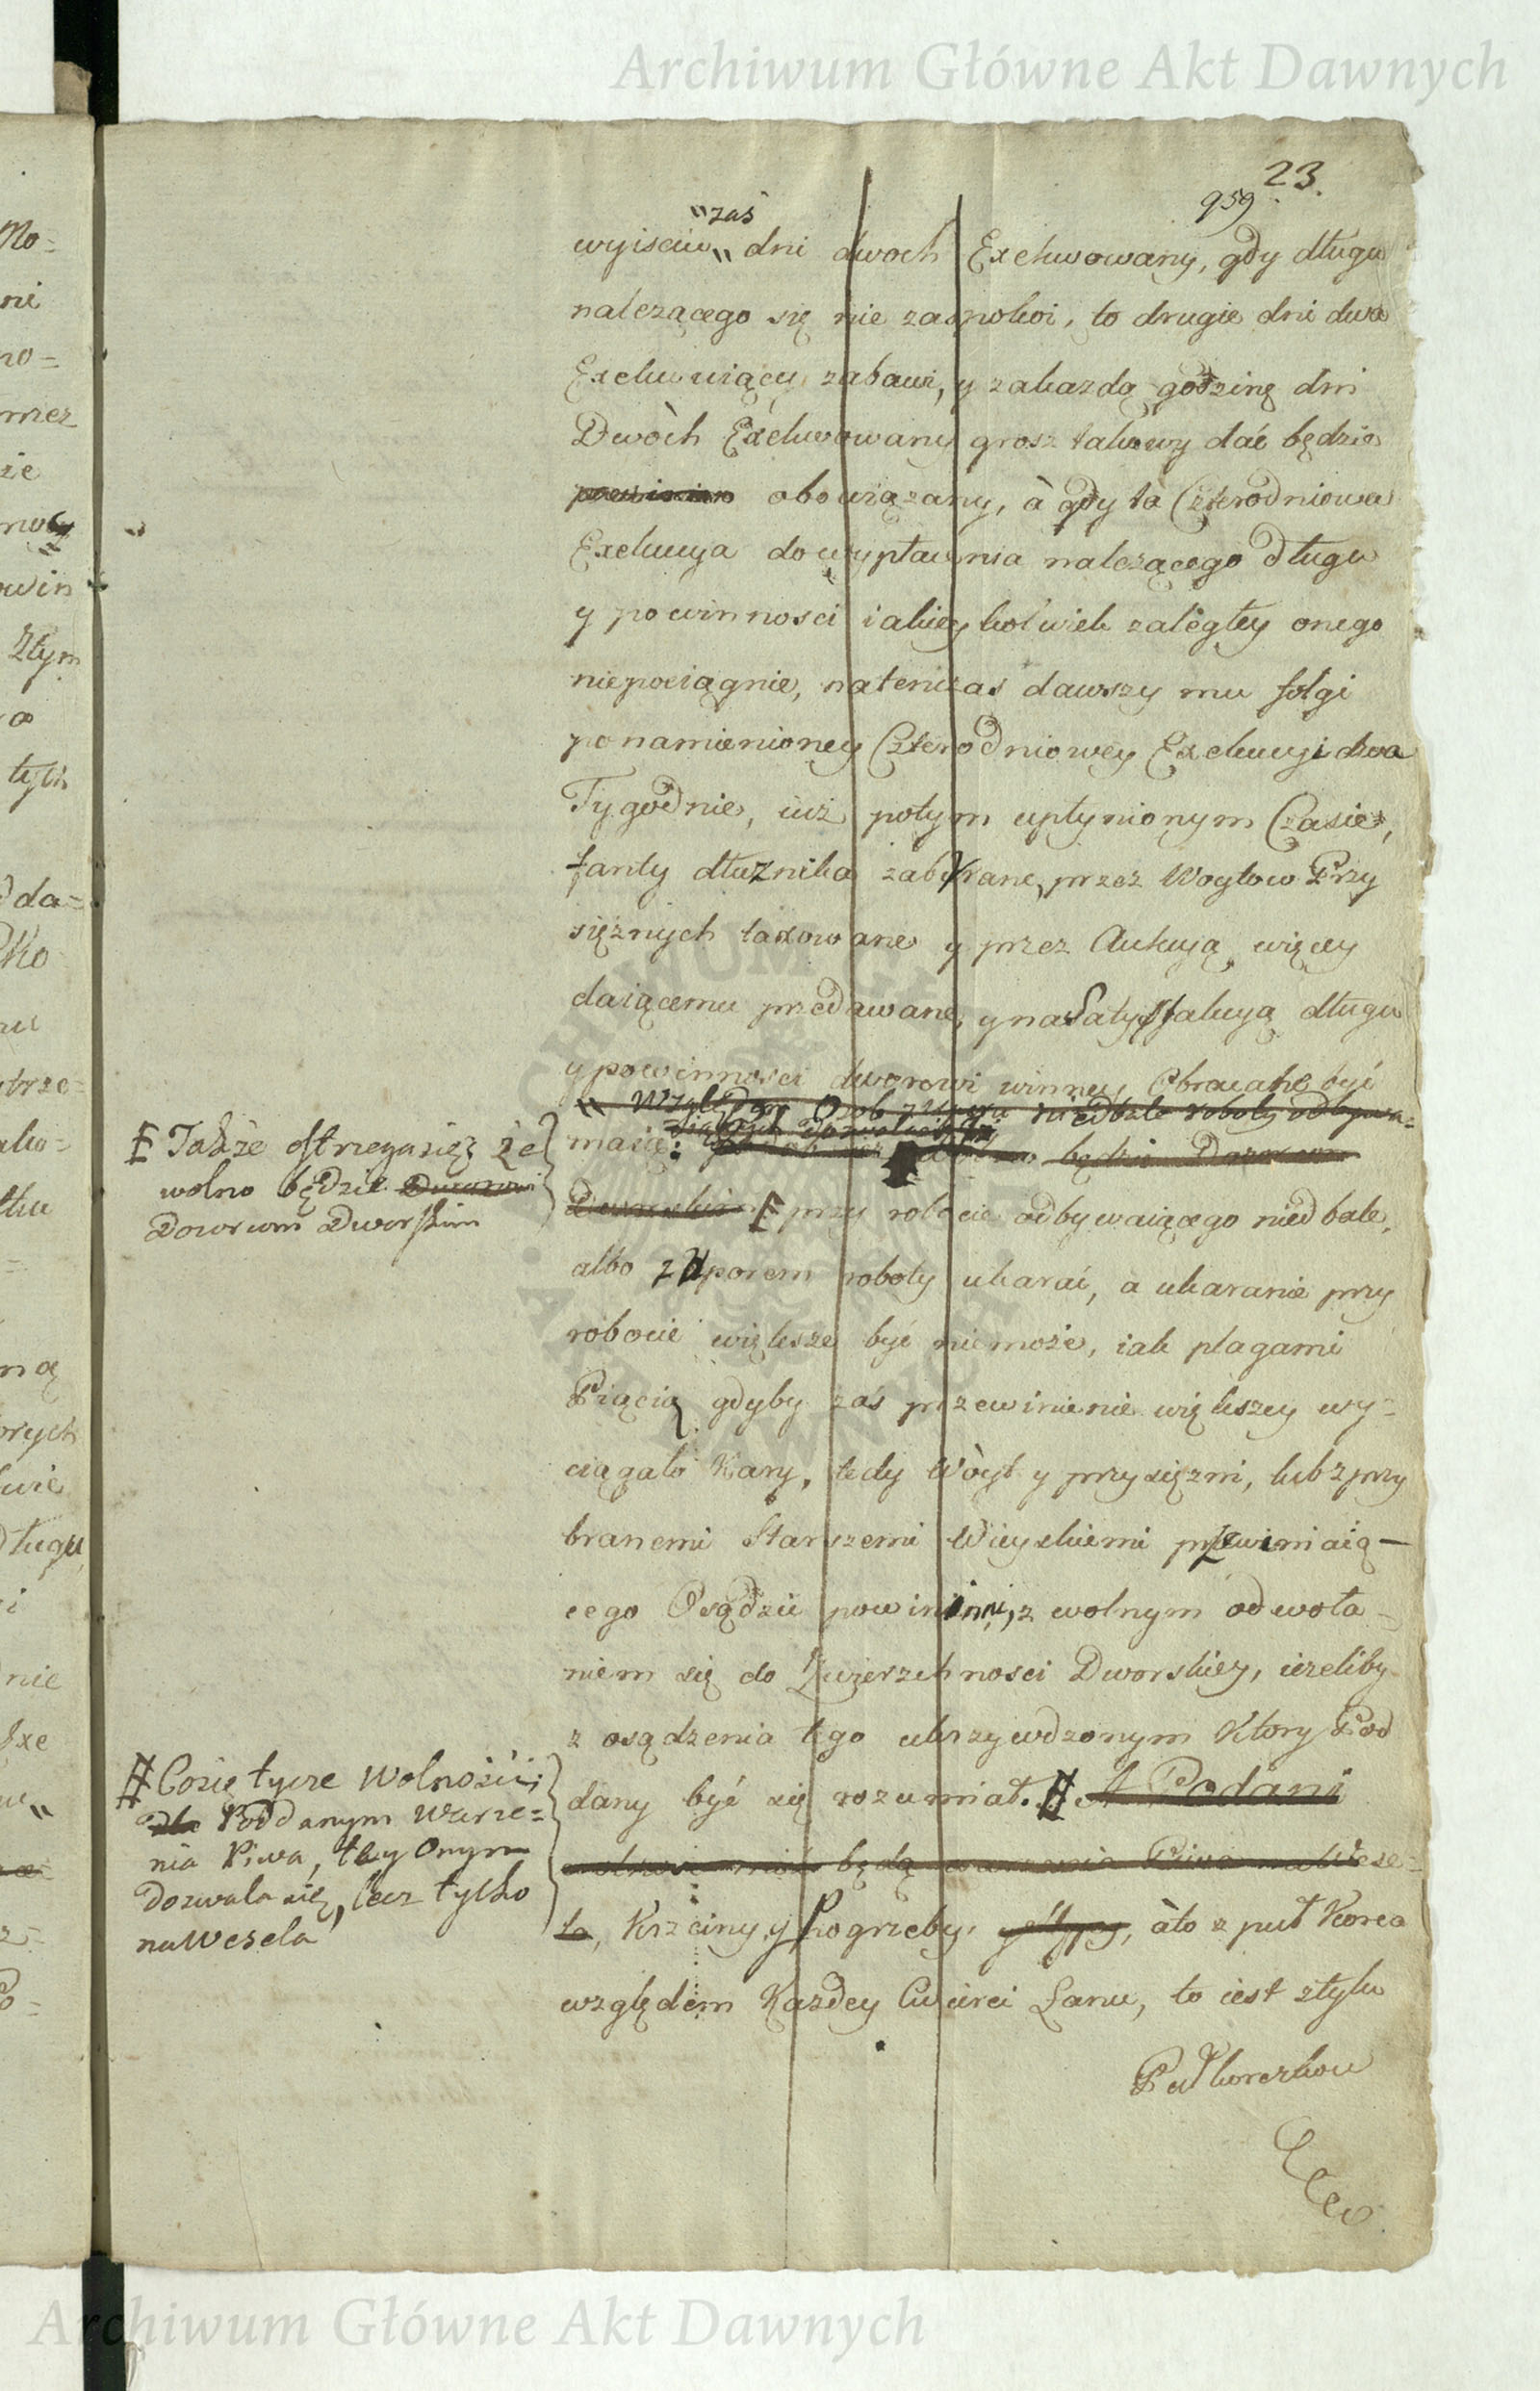 Archiwum Główne Akt Dawnych
23.
959
"zaś
wyiściu" dni dwoch Exekwowany, gdy długu
należącego się nie zaspokoi, to drugie dni dwa
Exekwuiący zabawi, y zakazdą godzinę dni
Dwòch Exekwowany grosz takowy dać będzie
obowiązany, à gdy ta Czterodniowa
Exekucya do wypłacenia należącego długu
y powinności iakieykolwiek zaległey onego
niepociągnie, natenczas dawszy mu folgi
ponamienioney Czterodniowey Exekucyi dwa
Tygodnie, iuż potym upłynionym Czasie,
fanty dłuznika zabierane, przez Woytow Przy
siężnych taxowane y przez Aukcyą więcey
daiącemu przedawane, y na Satysfakcyą długu
y powinności dworowi winney Obracane być
" Względem Osob z Uporu niedbale roboty odbywa=
maią: będzie Dozorcom
Dworskim
Ⱡ Także ostrzega się że
wolno będzie Dworowi
Dozorcom Dworskim
Ⱡ przy robocie odbywaiącego niedbale,
albo z Uporem roboty ukarać, a ukaranie przy
robocie większe być niemoże, iak plagami
Pięcią gdyby zaś przewinienie większey wy=
ciągało Kary, tedy Wòyt y przysięzni, lub z przy
branemi Starszemi Wieyskiemi przewiniaią—
cego Osądzić powinni, z wolnym odwoła-
niem się do Zwierzchności Dworskiey, ieżeliby
z osądzenia tego ukrzywdzonym Ktory Pod
dany być się rozumiał. # A Podani
będą warzenia Piwa na Wese=
ła, Krzciny y Pogrzeby, àto z puł Korca
względem Każdey Cwierci Łanu, to iest z tylu
# Co się tycze Wolności
dla Poddanym Warze=
nia Piwa, tey Onym
dozwala się, lecz tylko
na Wesela
Pułkorczkow
Archiwum Główne Akt Dawnych